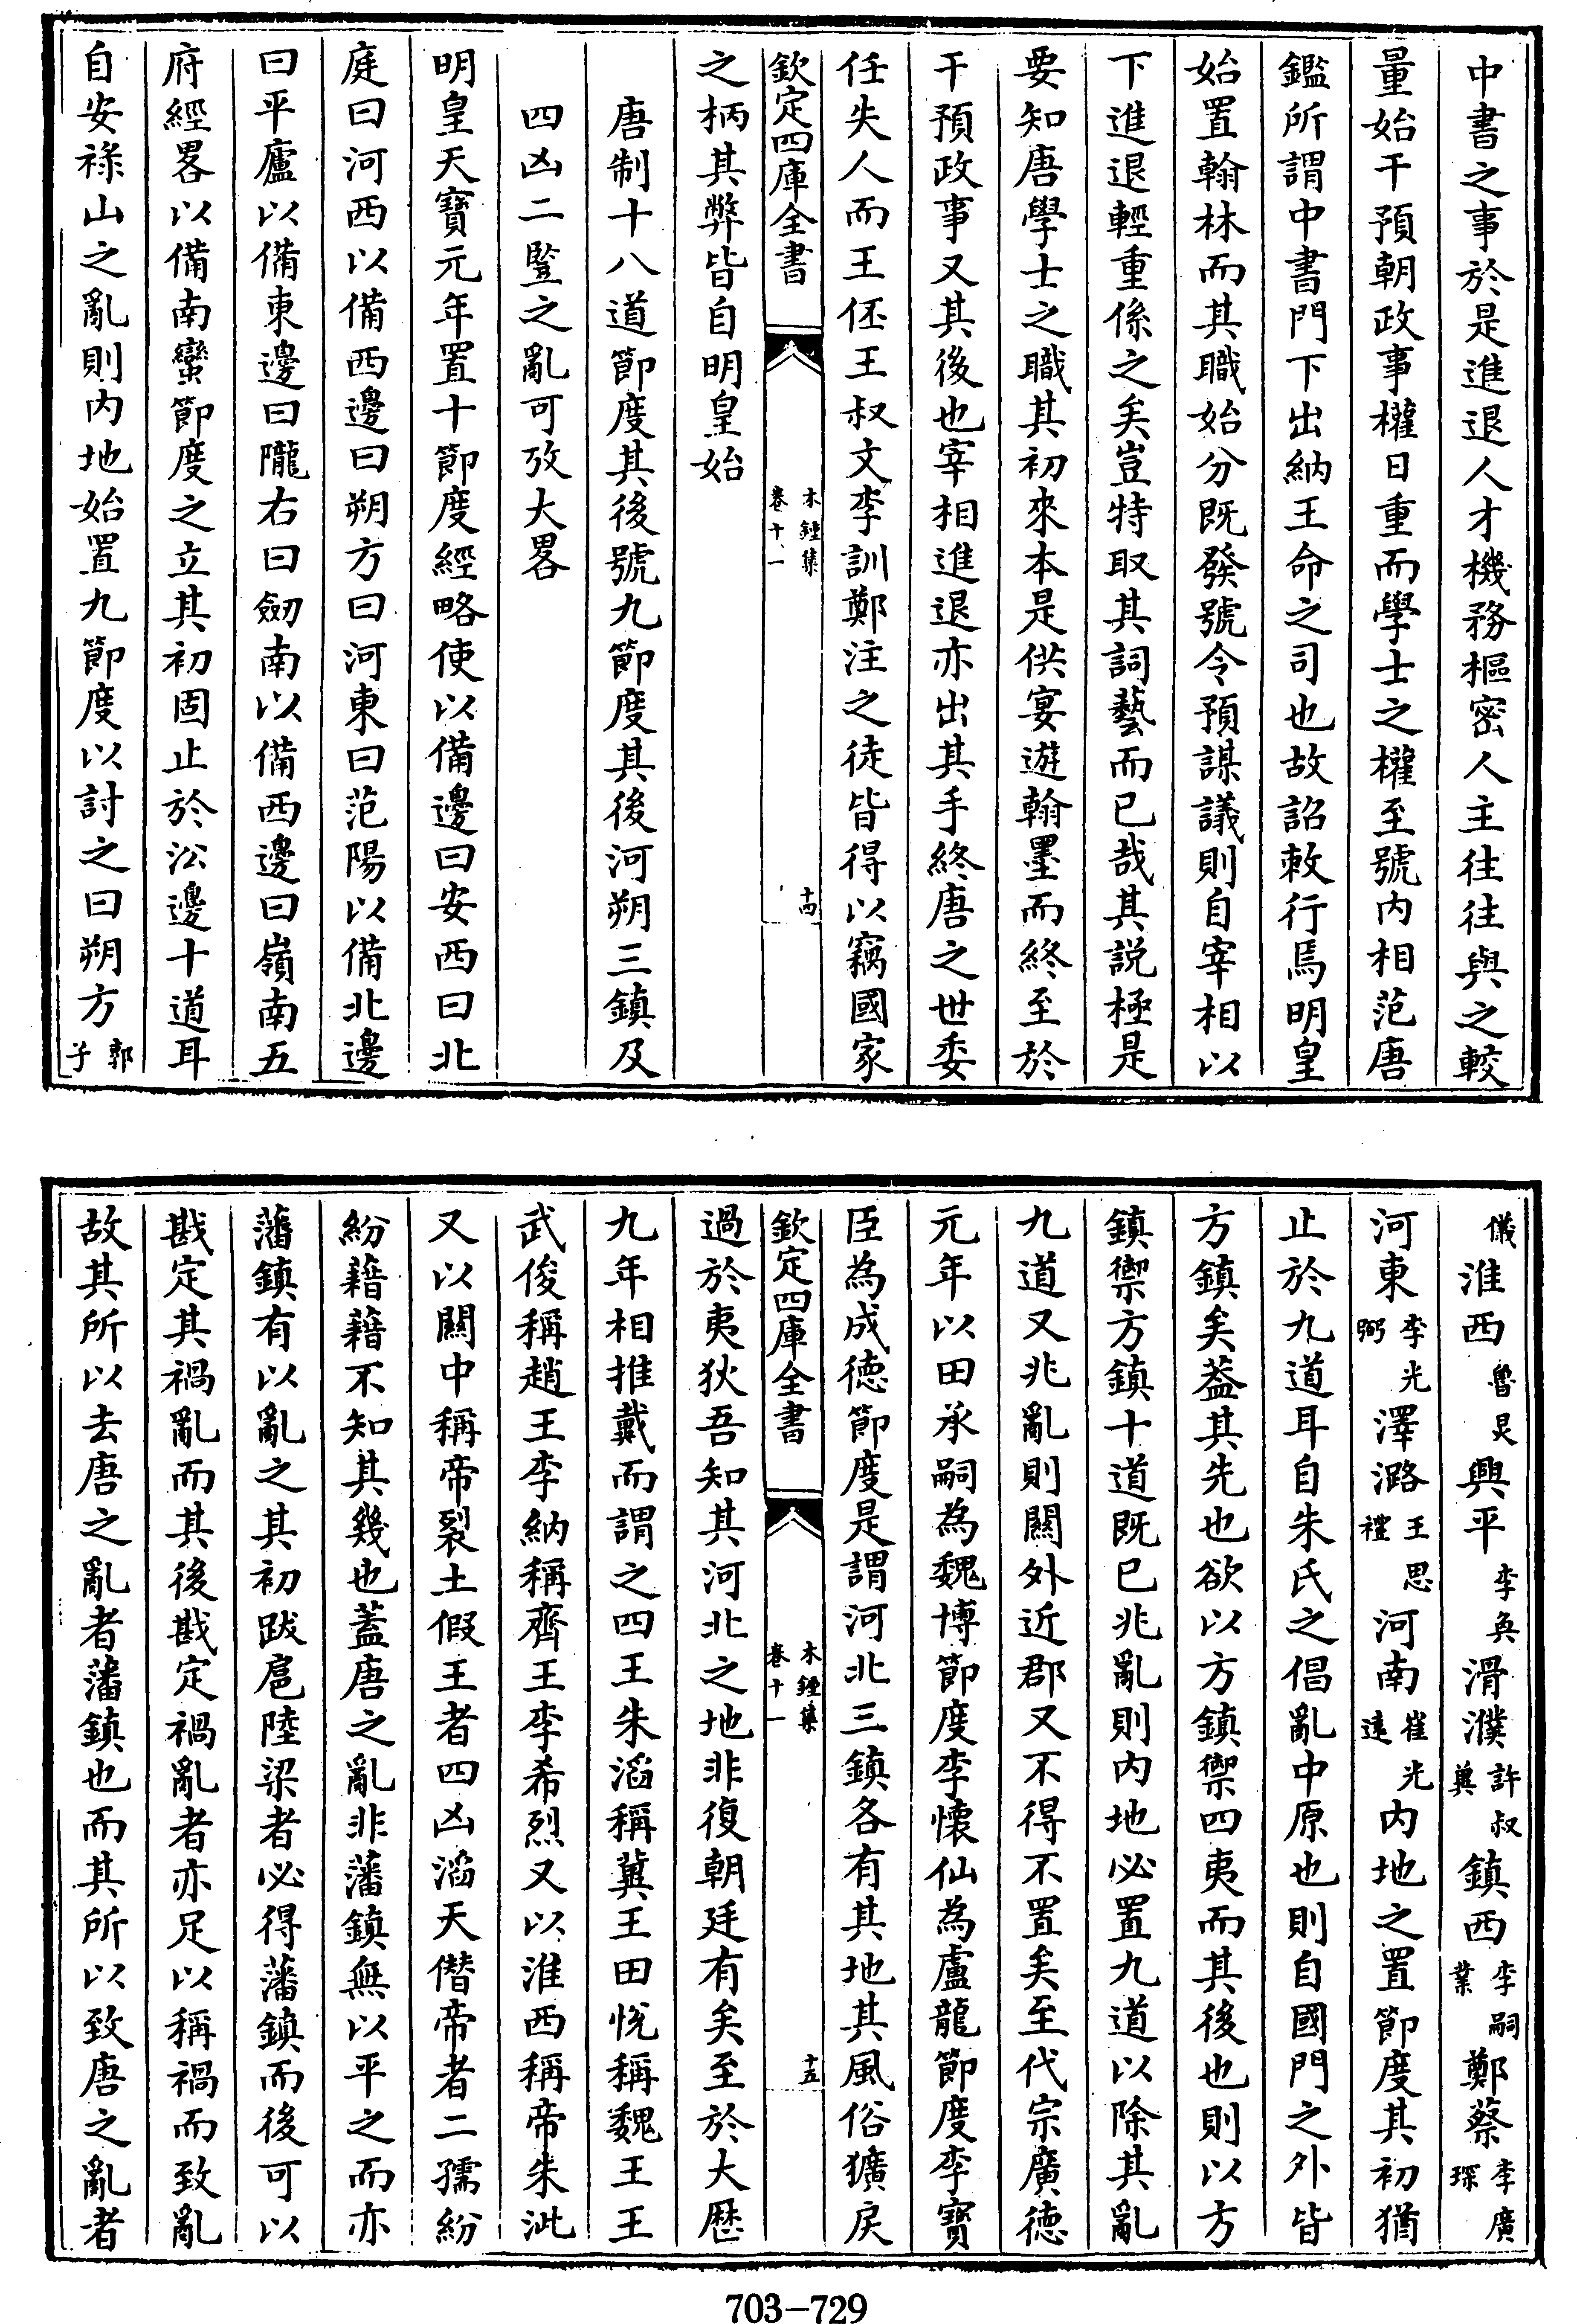 中書之事於是進退人才機務樞密人主往往與之較
量始干預朝政事權日重而學士之權至號内相范唐
鑑所謂中書門下出納王命之司也故詔敕行焉明皇
始置翰林而其職始分既發號令預謀議則自宰相以
下進退輕重係之矣豈特取其詞藝而已哉其説極是
要知唐學士之職其初來本是供宴遊翰墨而終至於
干預政事又其後也宰相進退亦出其手終唐之世委
任失人而王伾王叔文李訓鄭注之徒皆得以竊國家
欽定四庫全書 木鍾集 卷十一 十四
之柄其弊皆自明皇始
唐制十八道節度其後號九節度其後河朔三鎮及
四凶二豎之亂可攷大畧
明皇天寶元年置十節度經略使以備邊曰安西曰北
庭曰河西以備西邊曰朔方曰河東曰范陽以備北邊
曰平盧以備東邊曰隴右曰劒南以備西邊曰嶺南五
府經畧以備南蠻節度之立其初固止於㳂邊十道耳
自安祿山之亂則内地始置九節度以討之曰朔方郭子
儀淮西魯炅興平李奐滑濮許叔冀鎮西李嗣業鄭蔡李廣琛
河東李光弼澤潞王思禮河南崔光遠内地之置節度其初猶
止於九道耳自朱氏之倡亂中原也則自國門之外皆
方鎮矣葢其先也欲以方鎮禦四夷而其後也則以方
鎮禦方鎮十道既已兆亂則内地必置九道以除其亂
九道又兆亂則關外近郡又不得不置矣至代宗廣徳
元年以田承嗣為魏博節度李懷仙為盧龍節度李寳
臣為成德節度是謂河北三鎮各有其地其風俗獷戾
欽定四庫全書 木鍾集 卷十一 十五
過於夷狄吾知其河北之地非復朝廷有矣至於大厯
九年相推戴而謂之四王朱滔稱冀王田悅稱魏王王
武俊稱趙王李納稱齊王李希烈又以淮西稱帝朱泚
又以關中稱帝裂土假王者四凶滔天僭帝者二孺紛
紛藉藉不知其幾也蓋唐之亂非藩鎮無以平之而亦
藩鎮有以亂之其初跋扈陸梁者必得藩鎮而後可以
戡定其禍亂而其後戡定禍亂者亦足以稱禍而致亂
故其所以去唐之亂者藩鎮也而其所以致唐之亂者
703-729